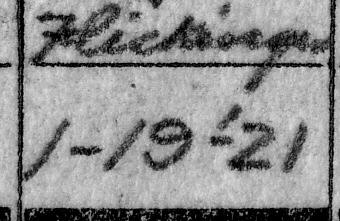 Flickinger
1-19-'21